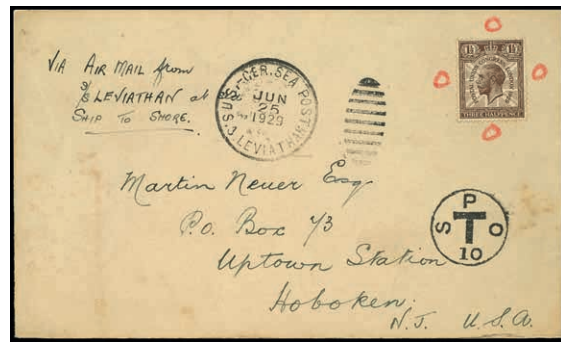 VIA AIR MAIL from
S/S LEVIATHAN at
SHIP TO SHORE.
U.S. GER. SEA POST
JUN
25
1929
S.S. LEVIATHAN
1½ 1½
POSTAL UNION CONGRESS LONDON 1929
THREE HALFPENCE
Martin Neuer Esq
P.O. Box 73
Uptown Station
Hoboken,
N.J. U.S.A.
S P O
T
10